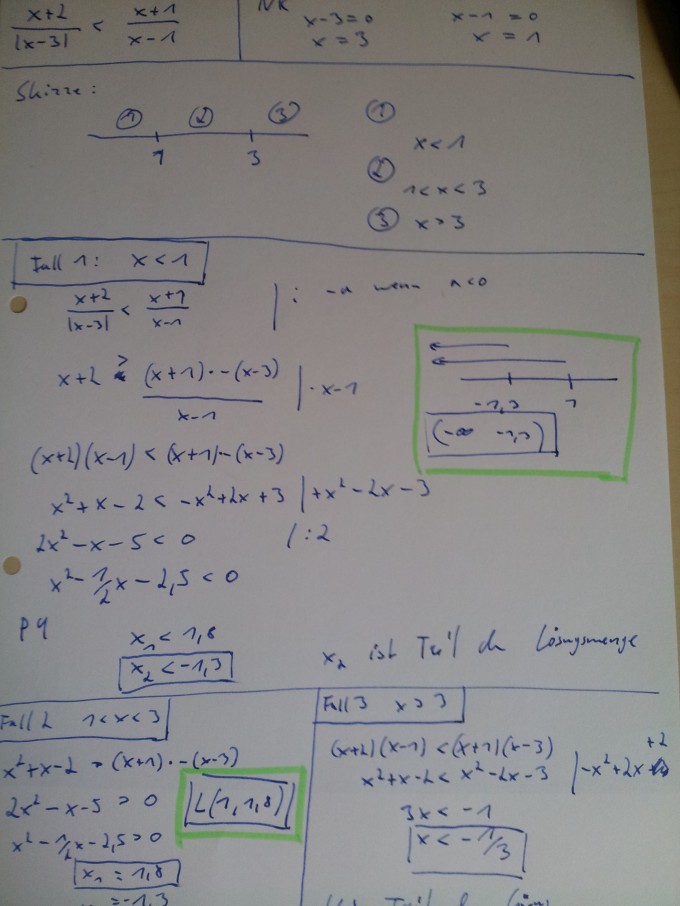 (x+2)/|x-3| < (x+1)/(x-1)
NR
x-3=0 x-1=0
x=3 x=1
Skizze:
① ② ③
1 3
①
x<1
②
1<x<3
③ x>3
Fall 1: x<1
(x+2)/|x-3| < (x+1)/(x-1) | : -a wenn a<0
x+2 > (x+1)·-(x-3)/(x-1) | ·x-1
(x+2)(x-1) < (x+1)·-(x-3)
x²+x-2 < -x²+2x+3 | +x²-2x-3
2x²-x-5<0 | :2
x²-1/2x-2,5<0
-1,3 1
(-∞ -1,3)
pq
x₁<1,8
x₂<-1,3
x₂ ist Teil der Lösungsmenge
Fall 2 1<x<3
x²+x-2 > (x+1)·-(x-3)
2x²-x-5>0
x²-1/2x-2,5>0
x₁=1,8
=-1,3
L(1,1,8)
Fall 3 x>3
(x+2)(x-1)<(x+1)(x-3)
x²+x-2<x²-2x-3 | -x²+2x+2
3x<-1
x<-1/3